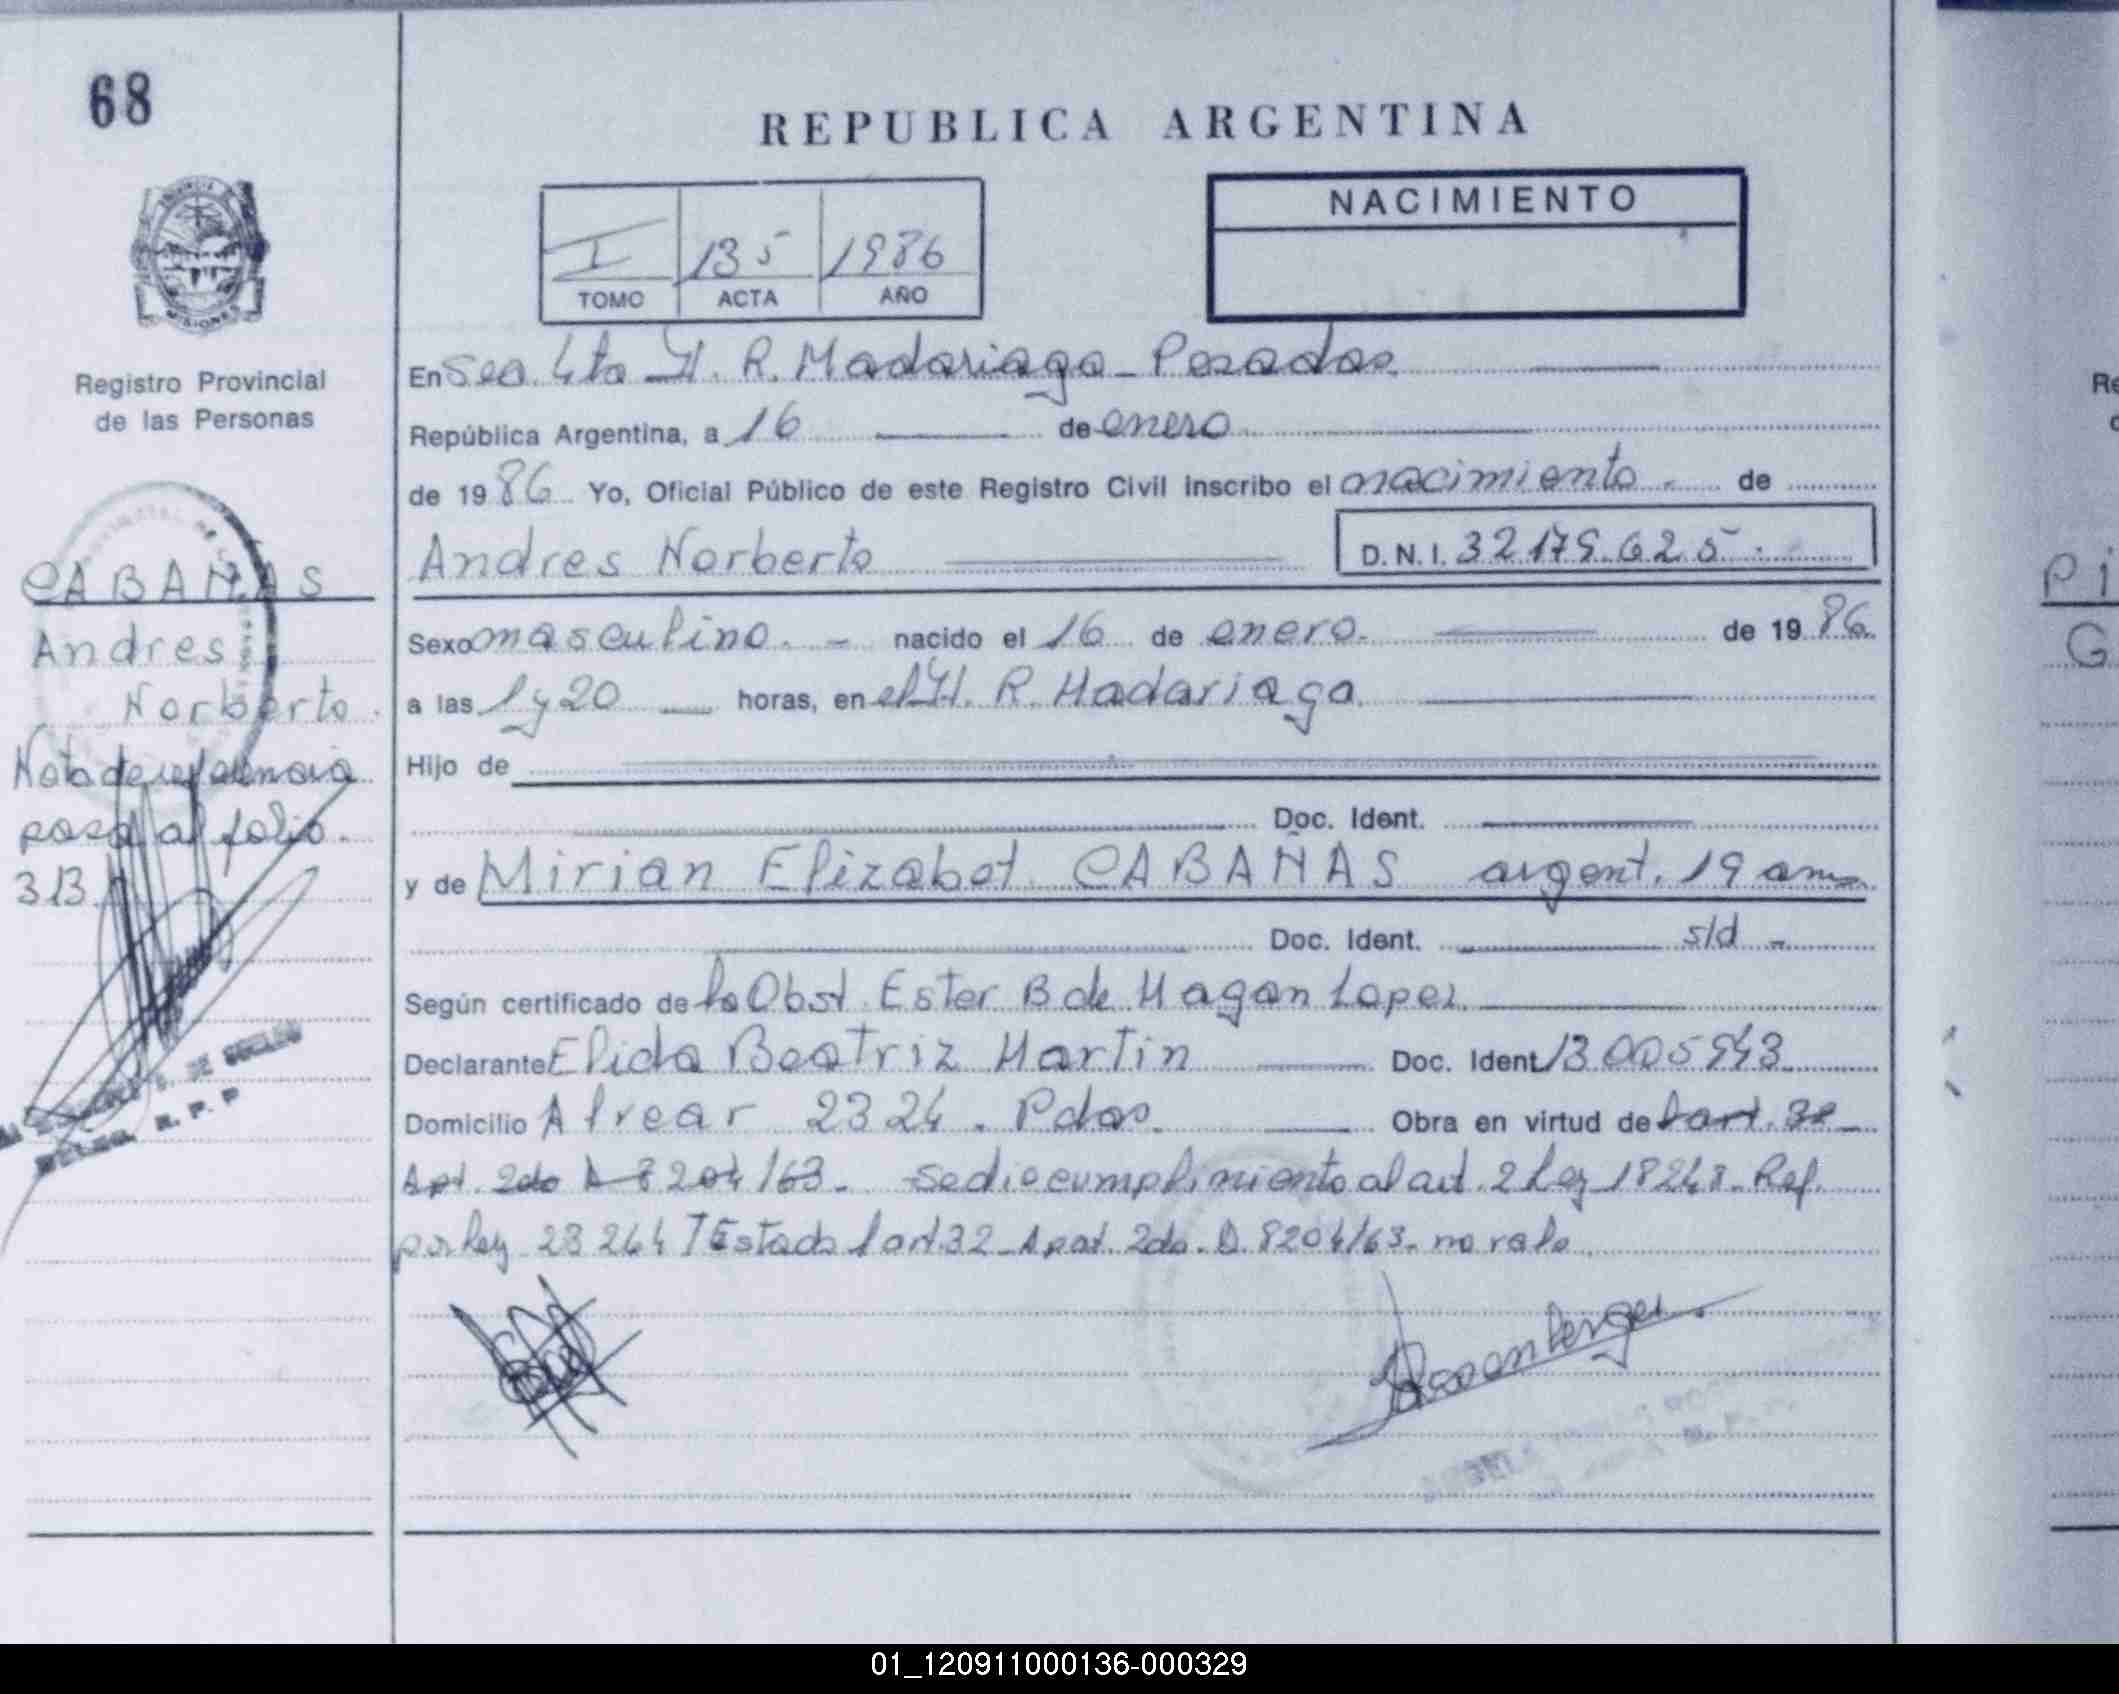 68
REPUBLICA ARGENTINA
NACIMIENTO
I 135 1986
TOMO ACTA AÑO
MISIONES
Registro Provincial
de las Personas
En Sec. 4ta H. R. Madariaga - Posadas.
República Argentina, a 16 de enero
de 19 86 Yo, Oficial Público de este Registro Civil inscribo el nacimiento. de
Andres Norberto D.N.I. 32.175.625.
CABAÑAS
Andres
Norberto.
Nota de referencia
pasa al folio.
313.
Sexo masculino. - nacido el 16 de enero. de 19 86.
a las 1 y 20 horas, en el H. R. Madariaga.
Hijo de
Doc. Ident.
y de Mirian Elizabet CABAÑAS argent. 19 años
Doc. Ident. s/d -
Según certificado de la Obst. Ester B de Magan Lopez.
Declarante Elida Beatriz Martin Doc. Ident 13005943
Domicilio Alvear 2324. Pdas. Obra en virtud de 1 art. 32
Apt. 2do D 8204/63. Se dio cumplimiento al art. 2 Ley 18248. Ref.
por Ley 23264 T Estado 1 art 32 - Apat. 2do. D. 8204/63. no vale.
R. P. P
01_120911000136-000329
Re
Pi
G